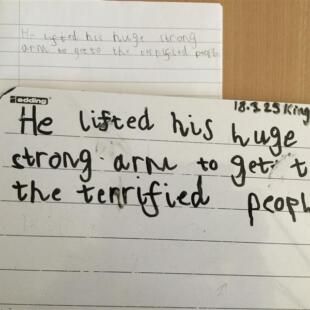 He lifted his huge strong
arm to get to the terrified people
edding
18.3.25 King
He lifted his huge
strong arm to get t
the terrified peopl